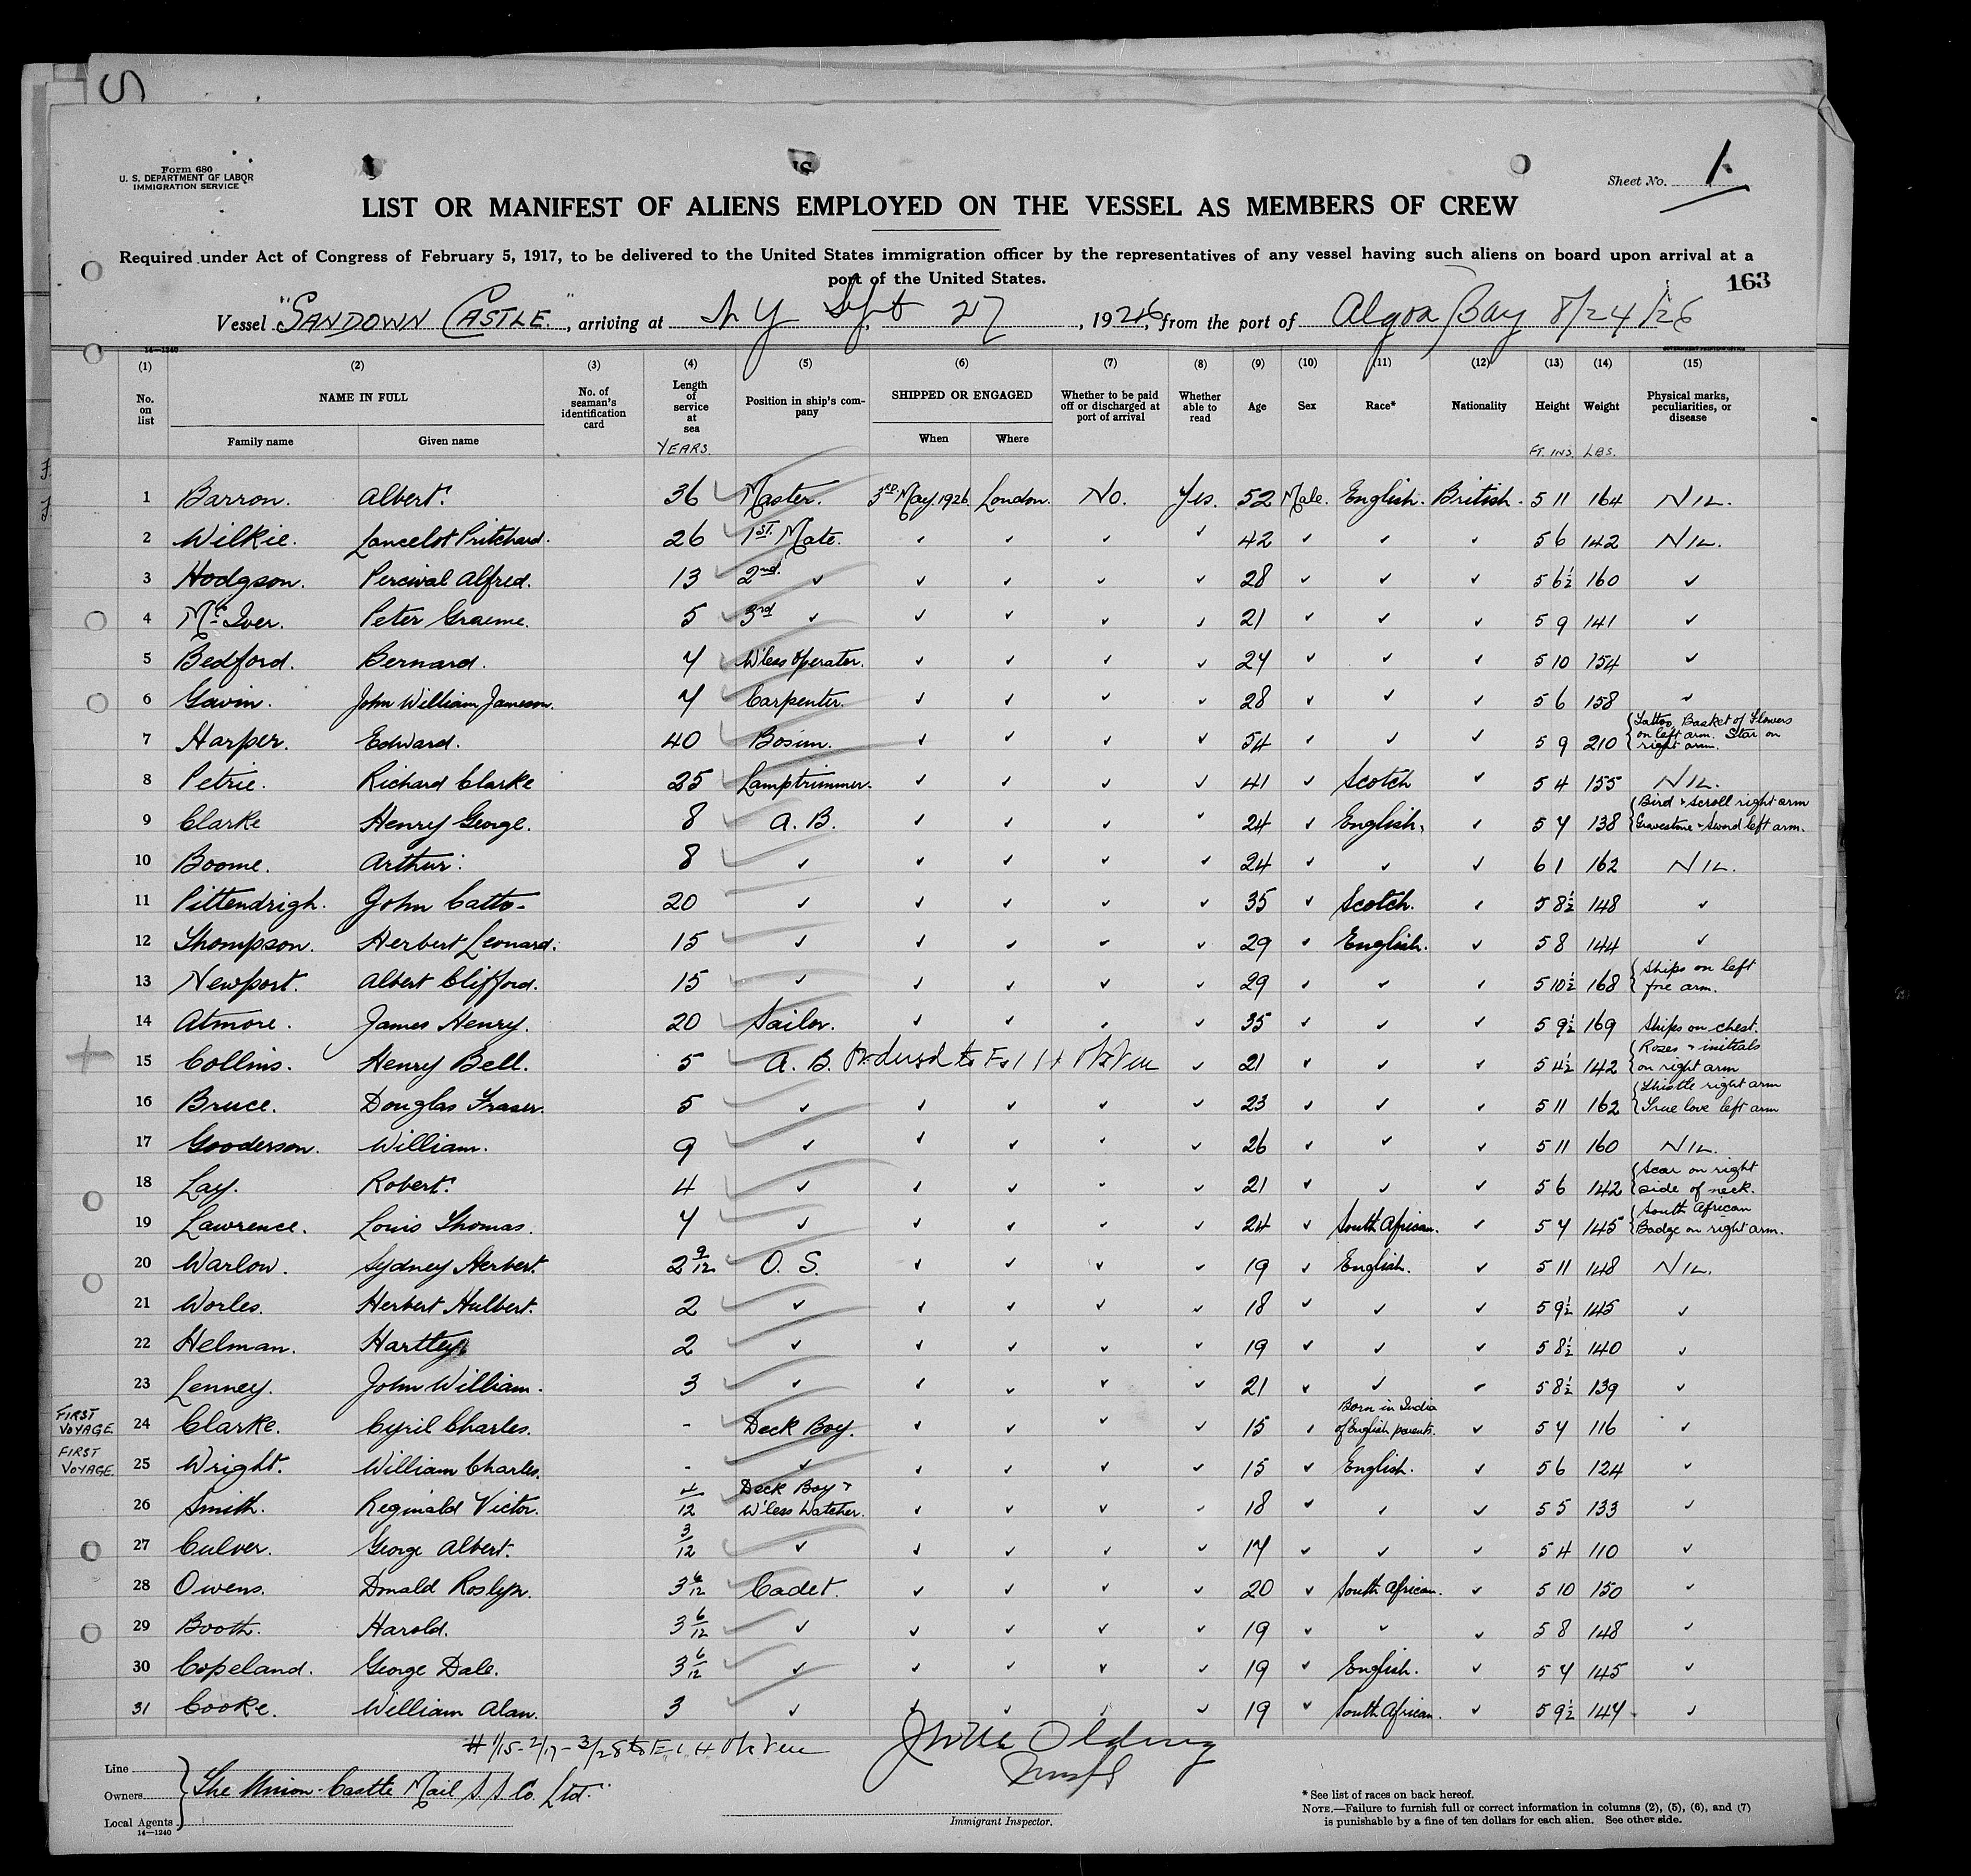 S
Form 680
U. S. DEPARTMENT OF LABOR
IMMIGRATION SERVICE
Sheet No. 1.
LIST OR MANIFEST OF ALIENS EMPLOYED ON THE VESSEL AS MEMBERS OF CREW
Required under Act of Congress of February 5, 1917, to be delivered to the United States immigration officer by the representatives of any vessel having such aliens on board upon arrival at a
port of the United States.
163
Vessel "SANDOWN CASTLE", arriving at N Y Sept 27, 1926, from the port of Algoa Bay 8/24/26
14—1240
(1) (2) (3) (4) (5) (6) (7) (8) (9) (10) (11) (12) (13) (14) (15)
No. on list NAME IN FULL No. of seaman's identification card Length of service at sea Position in ship's company SHIPPED OR ENGAGED Whether to be paid off or discharged at port of arrival Whether able to read Age Sex Race* Nationality Height Weight Physical marks, peculiarities, or disease
Family name Given name YEARS. When Where FT. INS. LBS.
1 Barron. Albert. 36 ✓ Master. 3RD May. 1926. London. No. Yes. 52 Male. English. British. 5 11 164 NIL.
2 Wilkie. Lancelot Pritchard. 26 ✓ 1ST. Mate. ✓ ✓ ✓ ✓ 42 ✓ ✓ ✓ 5 6 142 NIL.
3 Hodgson. Percival Alfred. 13 ✓ 2nd. ✓ ✓ ✓ ✓ ✓ 28 ✓ ✓ ✓ 5 6½ 160 ✓
4 McIver. Peter Graeme. 5 ✓ 3rd ✓ ✓ ✓ ✓ ✓ 21 ✓ ✓ ✓ 5 9 141 ✓
5 Bedford. Bernard. 7 ✓ W'less operator. ✓ ✓ ✓ ✓ 24 ✓ ✓ ✓ 5 10 154 ✓
6 Gavin. John William Jameson. 7 ✓ Carpenter. ✓ ✓ ✓ ✓ 28 ✓ ✓ ✓ 5 6 158 ✓
7 Harper. Edward. 40 ✓ Bosun. ✓ ✓ ✓ ✓ 54 ✓ ✓ ✓ 5 9 210 Tattoo Basket of Flowers on left arm. Star on right arm.
8 Petrie. Richard Clarke 25 ✓ Lamptrimmer. ✓ ✓ ✓ ✓ 41 ✓ Scotch ✓ 5 4 155 NIL.
9 Clarke Henry George. 8 ✓ A. B. ✓ ✓ ✓ ✓ 24 ✓ English. ✓ 5 7 138 Bird & Scroll right arm Gravestone & Sword left arm.
10 Boome. Arthur. 8 ✓ ✓ ✓ ✓ ✓ ✓ 24 ✓ ✓ ✓ 6 1 162 NIL.
11 Pittendrigh. John Catto- 20 ✓ ✓ ✓ ✓ ✓ ✓ 35 ✓ Scotch. ✓ 5 8½ 148 ✓
12 Thompson. Herbert Leonard. 15 ✓ ✓ ✓ ✓ ✓ ✓ 29 ✓ English. ✓ 5 8 144 ✓
13 Newport. Albert Clifford. 15 ✓ ✓ ✓ ✓ ✓ ✓ 29 ✓ ✓ ✓ 5 10½ 168 Ships on left fore arm.
14 Atmore. James Henry. 20 ✓ Sailor. ✓ ✓ ✓ ✓ 35 ✓ ✓ ✓ 5 9½ 169 Ships on chest.
15 Collins. Henry Bell. 5 ✓ A. B. ✓ 21 ✓ ✓ ✓ 5 4½ 142 Roses & initials on right arm
16 Bruce. Douglas Fraser. 5 ✓ ✓ ✓ ✓ ✓ ✓ 23 ✓ ✓ ✓ 5 11 162 Thistle right arm True love left arm
17 Gooderson. William. 9 ✓ ✓ ✓ ✓ ✓ ✓ 26 ✓ ✓ ✓ 5 11 160 NIL.
18 Lay. Robert. 4 ✓ ✓ ✓ ✓ ✓ ✓ 21 ✓ ✓ ✓ 5 6 142 Scar on right side of neck.
19 Lawrence. Louis Thomas. 7 ✓ ✓ ✓ ✓ ✓ ✓ 24 ✓ South African. ✓ 5 7 145 South African Badge on right arm.
20 Warlow. Sydney Herbert. 2 9/12 ✓ O. S. ✓ ✓ ✓ ✓ 19 ✓ English. ✓ 5 11 148 NIL.
21 Worles. Herbert Hulbert. 2 ✓ ✓ ✓ ✓ ✓ ✓ 18 ✓ ✓ ✓ 5 9½ 145 ✓
22 Helman. Hartley. 2 ✓ ✓ ✓ ✓ ✓ ✓ 19 ✓ ✓ ✓ 5 8½ 140 ✓
23 Lenney. John William. 3 ✓ ✓ ✓ ✓ ✓ ✓ 21 ✓ ✓ ✓ 5 8½ 139 ✓
FIRST VOYAGE 24 Clarke. Cyril Charles. - Deck Boy. ✓ ✓ ✓ ✓ 15 ✓ Born in India of English parents. ✓ 5 7 116 ✓
FIRST VOYAGE. 25 Wright. William Charles. - ✓ ✓ ✓ ✓ ✓ 15 ✓ English. ✓ 5 6 124 ✓
26 Smith. Reginald Victor. 4/12 Deck Boy & W'less Watcher. ✓ ✓ ✓ ✓ 18 ✓ ✓ ✓ 5 5 133 ✓
27 Culver. George Albert. 3/12 ✓ ✓ ✓ ✓ ✓ ✓ 17 ✓ ✓ ✓ 5 4 110 ✓
28 Owens. Donald Roslyn. 3 6/12 ✓ Cadet. ✓ ✓ ✓ ✓ 20 ✓ South African. ✓ 5 10 150 ✓
29 Booth. Harold. 3 6/12 ✓ ✓ ✓ ✓ ✓ ✓ 19 ✓ ✓ ✓ 5 8 148 ✓
30 Copeland. George Dale. 3 6/12 ✓ ✓ ✓ ✓ ✓ ✓ 19 ✓ English. ✓ 5 7 145 ✓
31 Cooke. William Alan. 3 ✓ ✓ ✓ ✓ ✓ ✓ 19 ✓ South African. ✓ 5 9½ 147 ✓
Line
Owners The Union-Castle Mail S. S. Co. Ltd.
Local Agents
14—1240
Immigrant Inspector.
* See list of races on back hereof.
NOTE.—Failure to furnish full or correct information in columns (2), (5), (6), and (7)
is punishable by a fine of ten dollars for each alien. See other side.